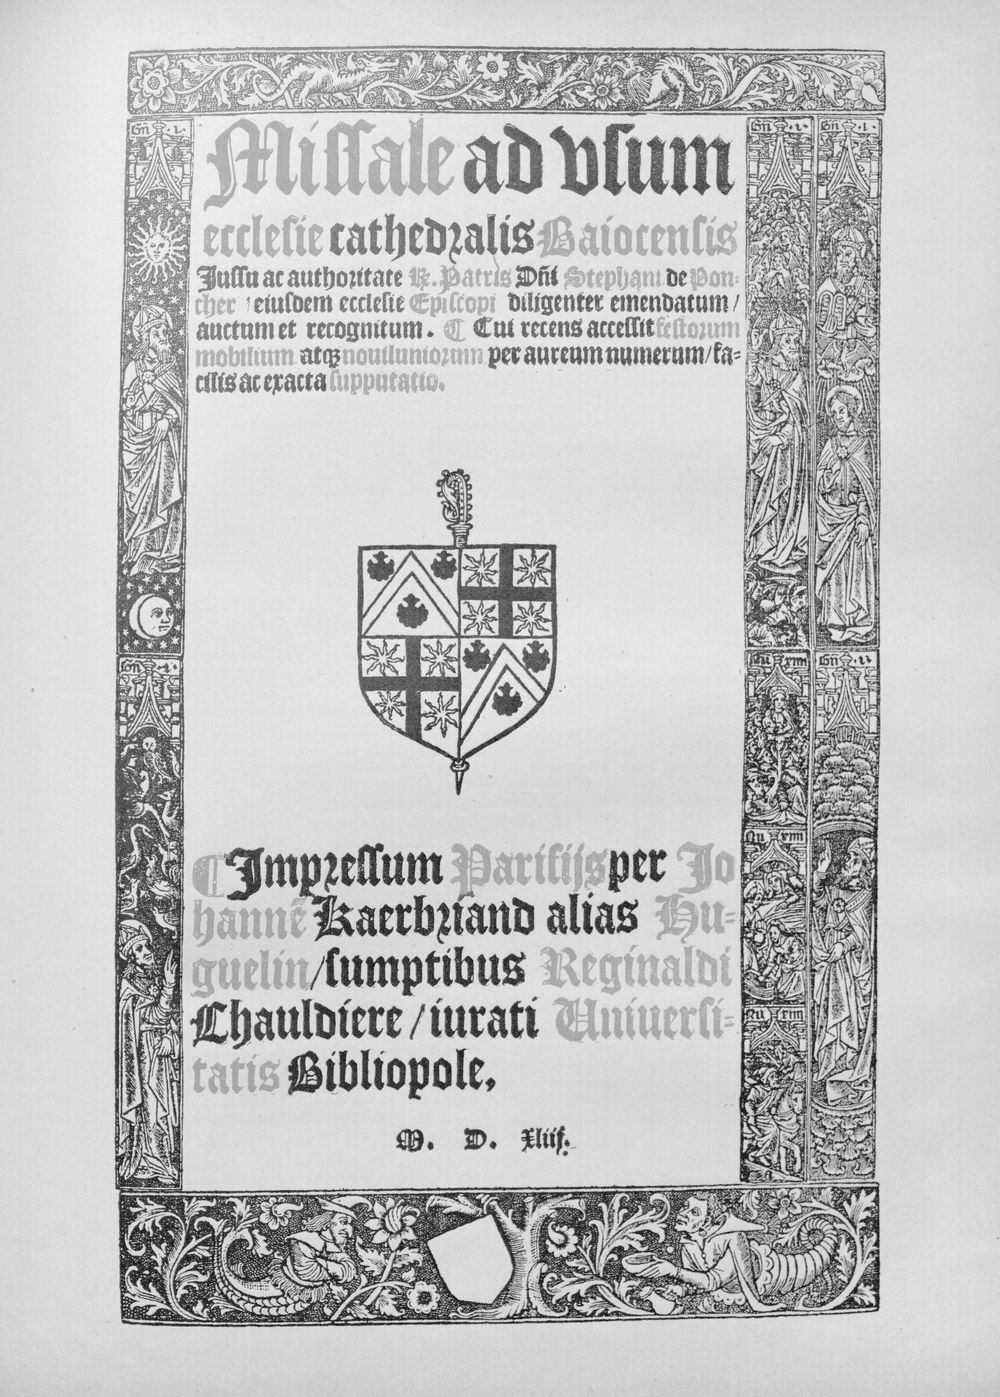 Missale ad vsum
ecclesie cathedralis Baiocensis
Jussu ac authoritate R. Patris Dñi Stephani de Pon-
cher / eiusdem ecclesie Episcopi diligenter emendatum /
auctum et recognitum. ¶ Cui recens accessit festorum
mobilium atqꝫ nouiluniorum per aureum numerum / fa-
cilis ac exacta supputatio.
¶ Impressum Parisijs per Jo
hannē Kaerbriand alias Hu-
guelin / sumptibus Reginaldi
Chauldiere / iurati Uniuersi-
tatis Bibliopole,
M. D. xliij.